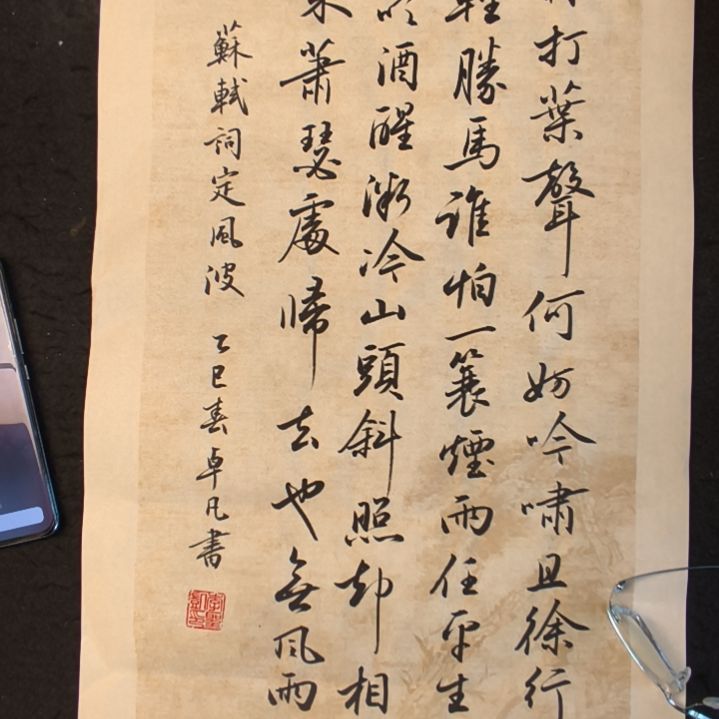 打葉聲何妨吟嘯且徐行
輕勝馬誰怕一蓑煙雨任平生
吹酒醒漸冷山頭斜照却相
來蕭瑟處歸去也無風雨
蘇軾詞定風波 乙巳春卓凡書